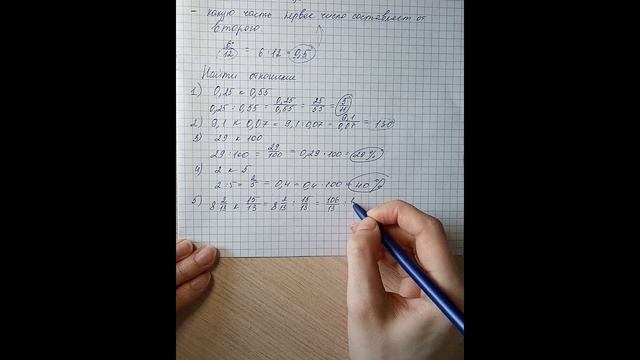 - какую часть первое число составляет от
второго
6/12 = 6 : 12 = 0,5
Найти отношение
1) 0,25 к 0,55
0,25 : 0,55 = 0,25/0,55 = 25/55 = 5/11
2) 9,1 к 0,07 = 9,1 : 0,07 = 9,1/0,07 = 130
3) 29 к 100
29 : 100 = 29/100 = 0,29 · 100 = 29%
4) 2 к 5
2 : 5 = 2/5 = 0,4 = 0,4 · 100 = 40%
5) 8 2/13 к 15/13 = 8 2/13 : 15/13 = 106/13 :